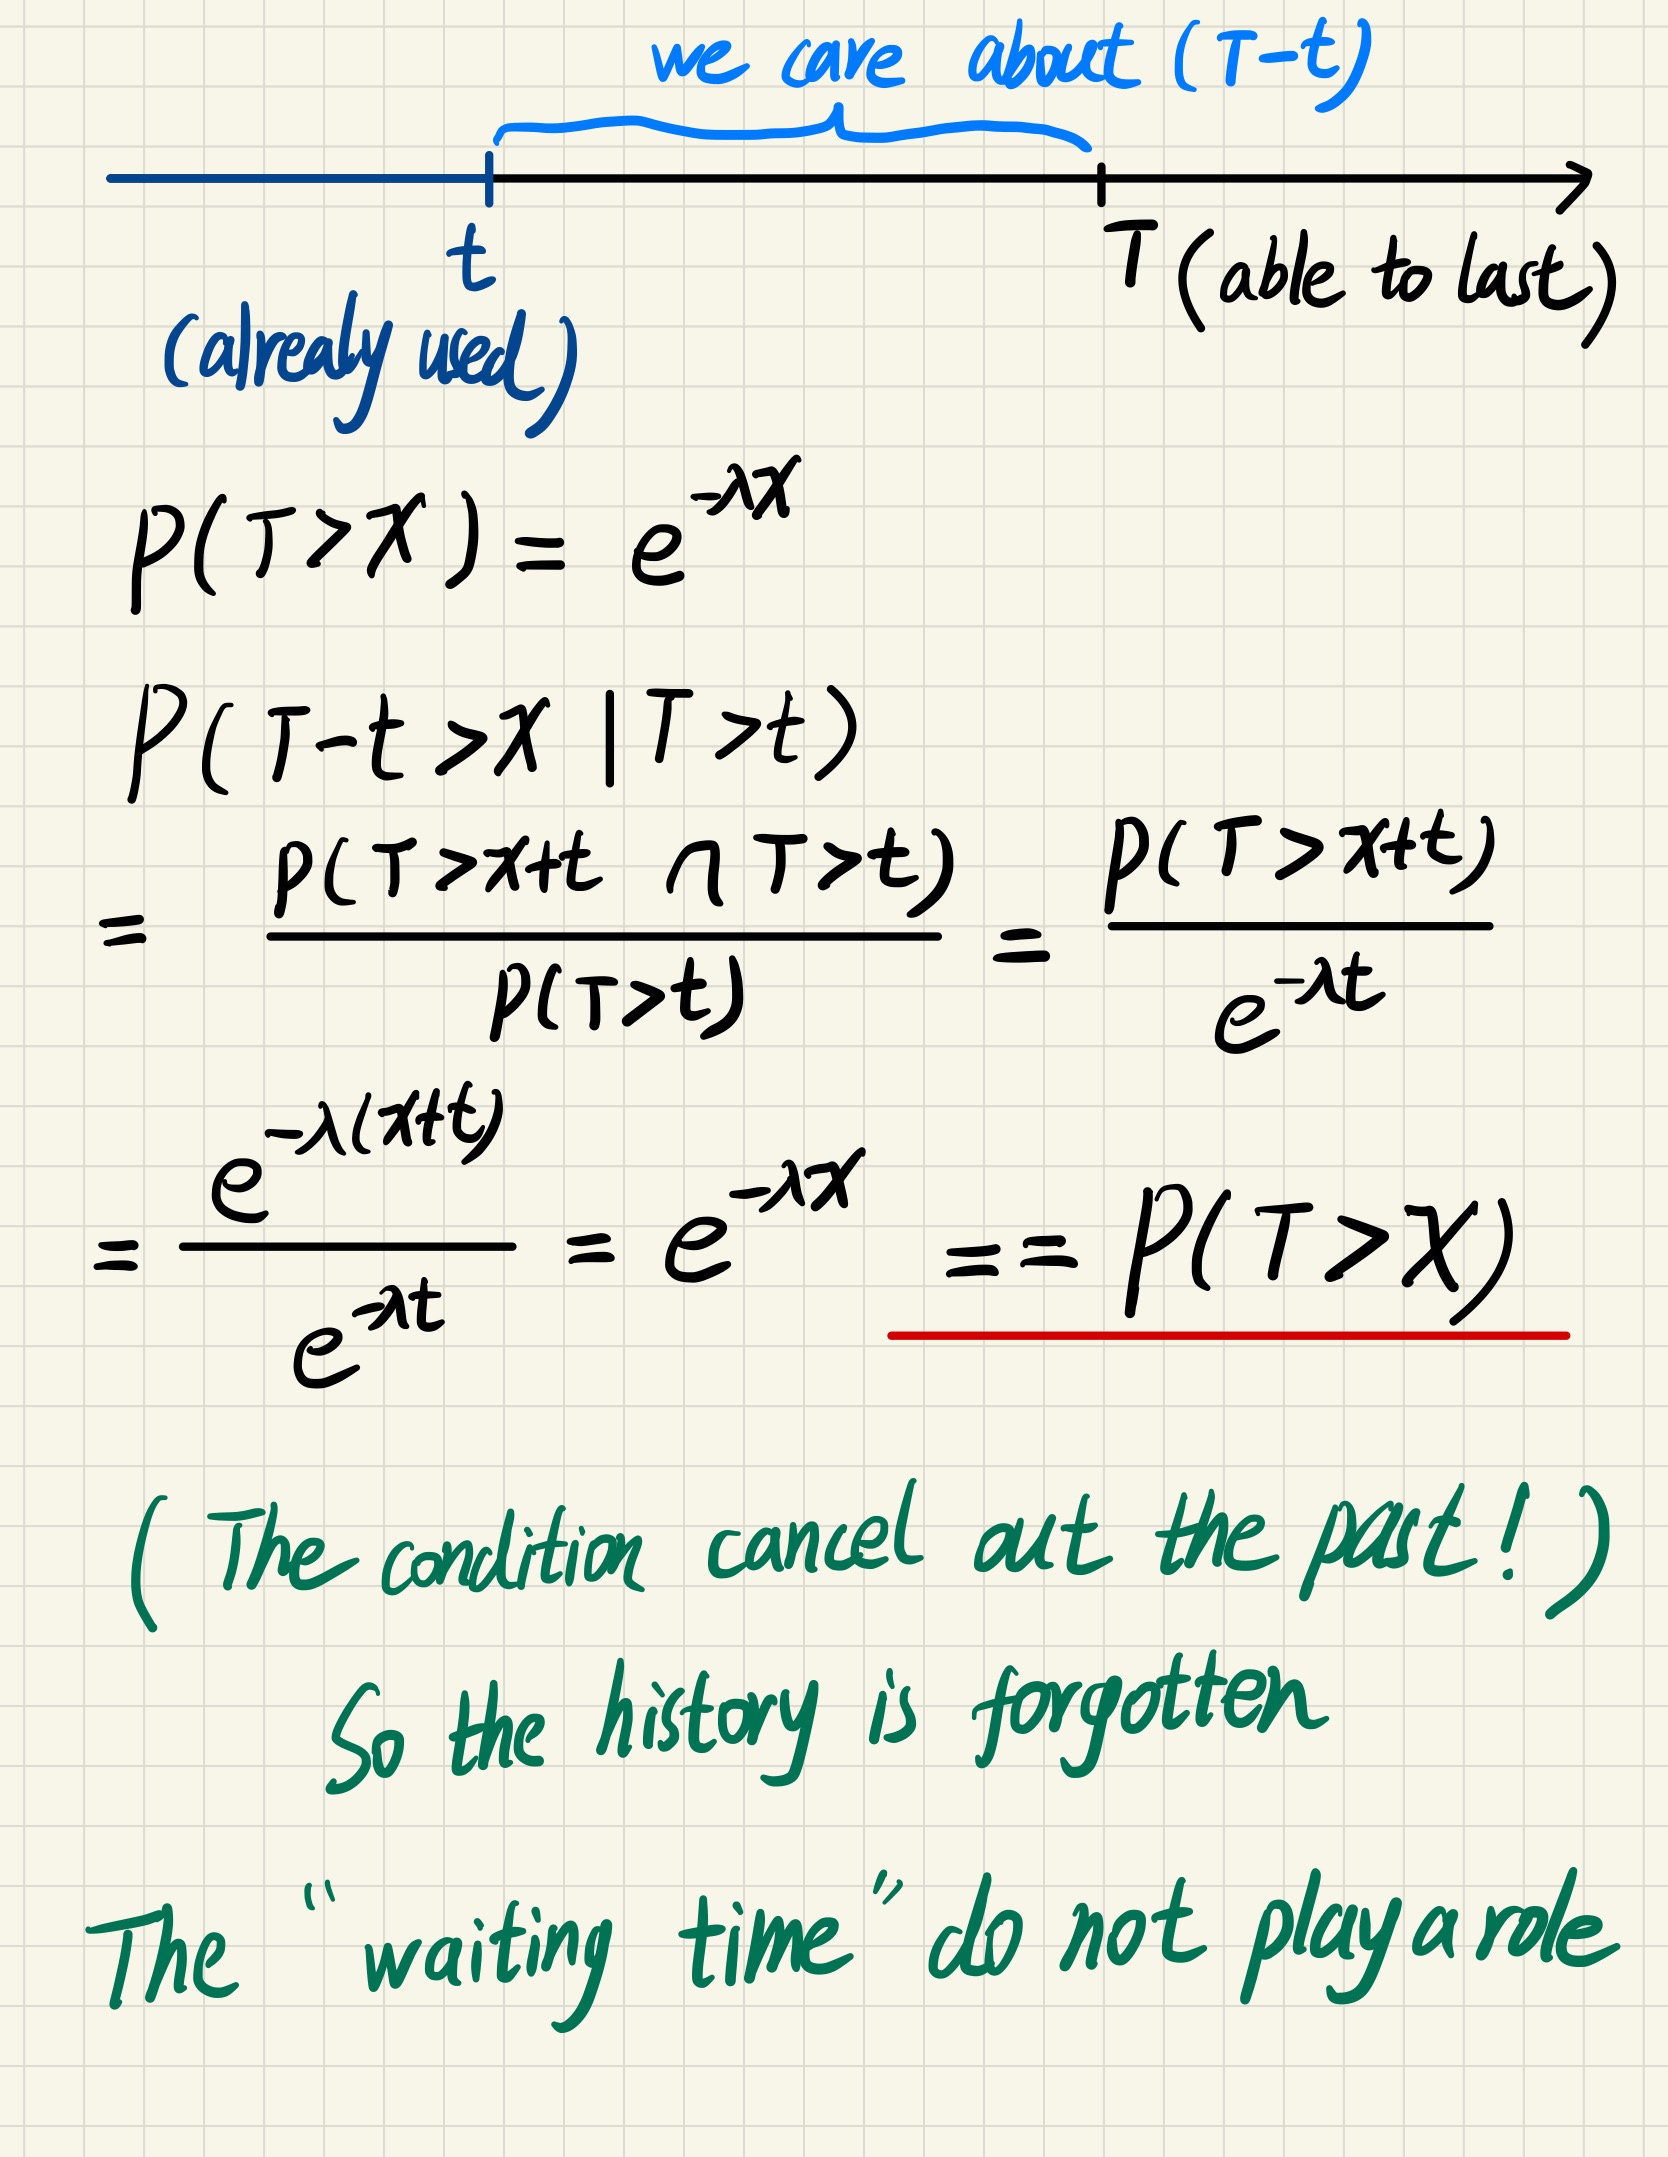 we care about (T-t)
t
T (able to last)
(alrealy used)
P(T>X) = e^{-λx}
P(T-t>X | T>t)
= \frac{P(T>x+t ∩ T>t)}{P(T>t)} = \frac{P(T>x+t)}{e^{-λt}}
= \frac{e^{-λ(x+t)}}{e^{-λt}} = e^{-λx} == P(T>X)
(The condition cancel out the past!)
So the history is forgotten
The "waiting time" do not play a role